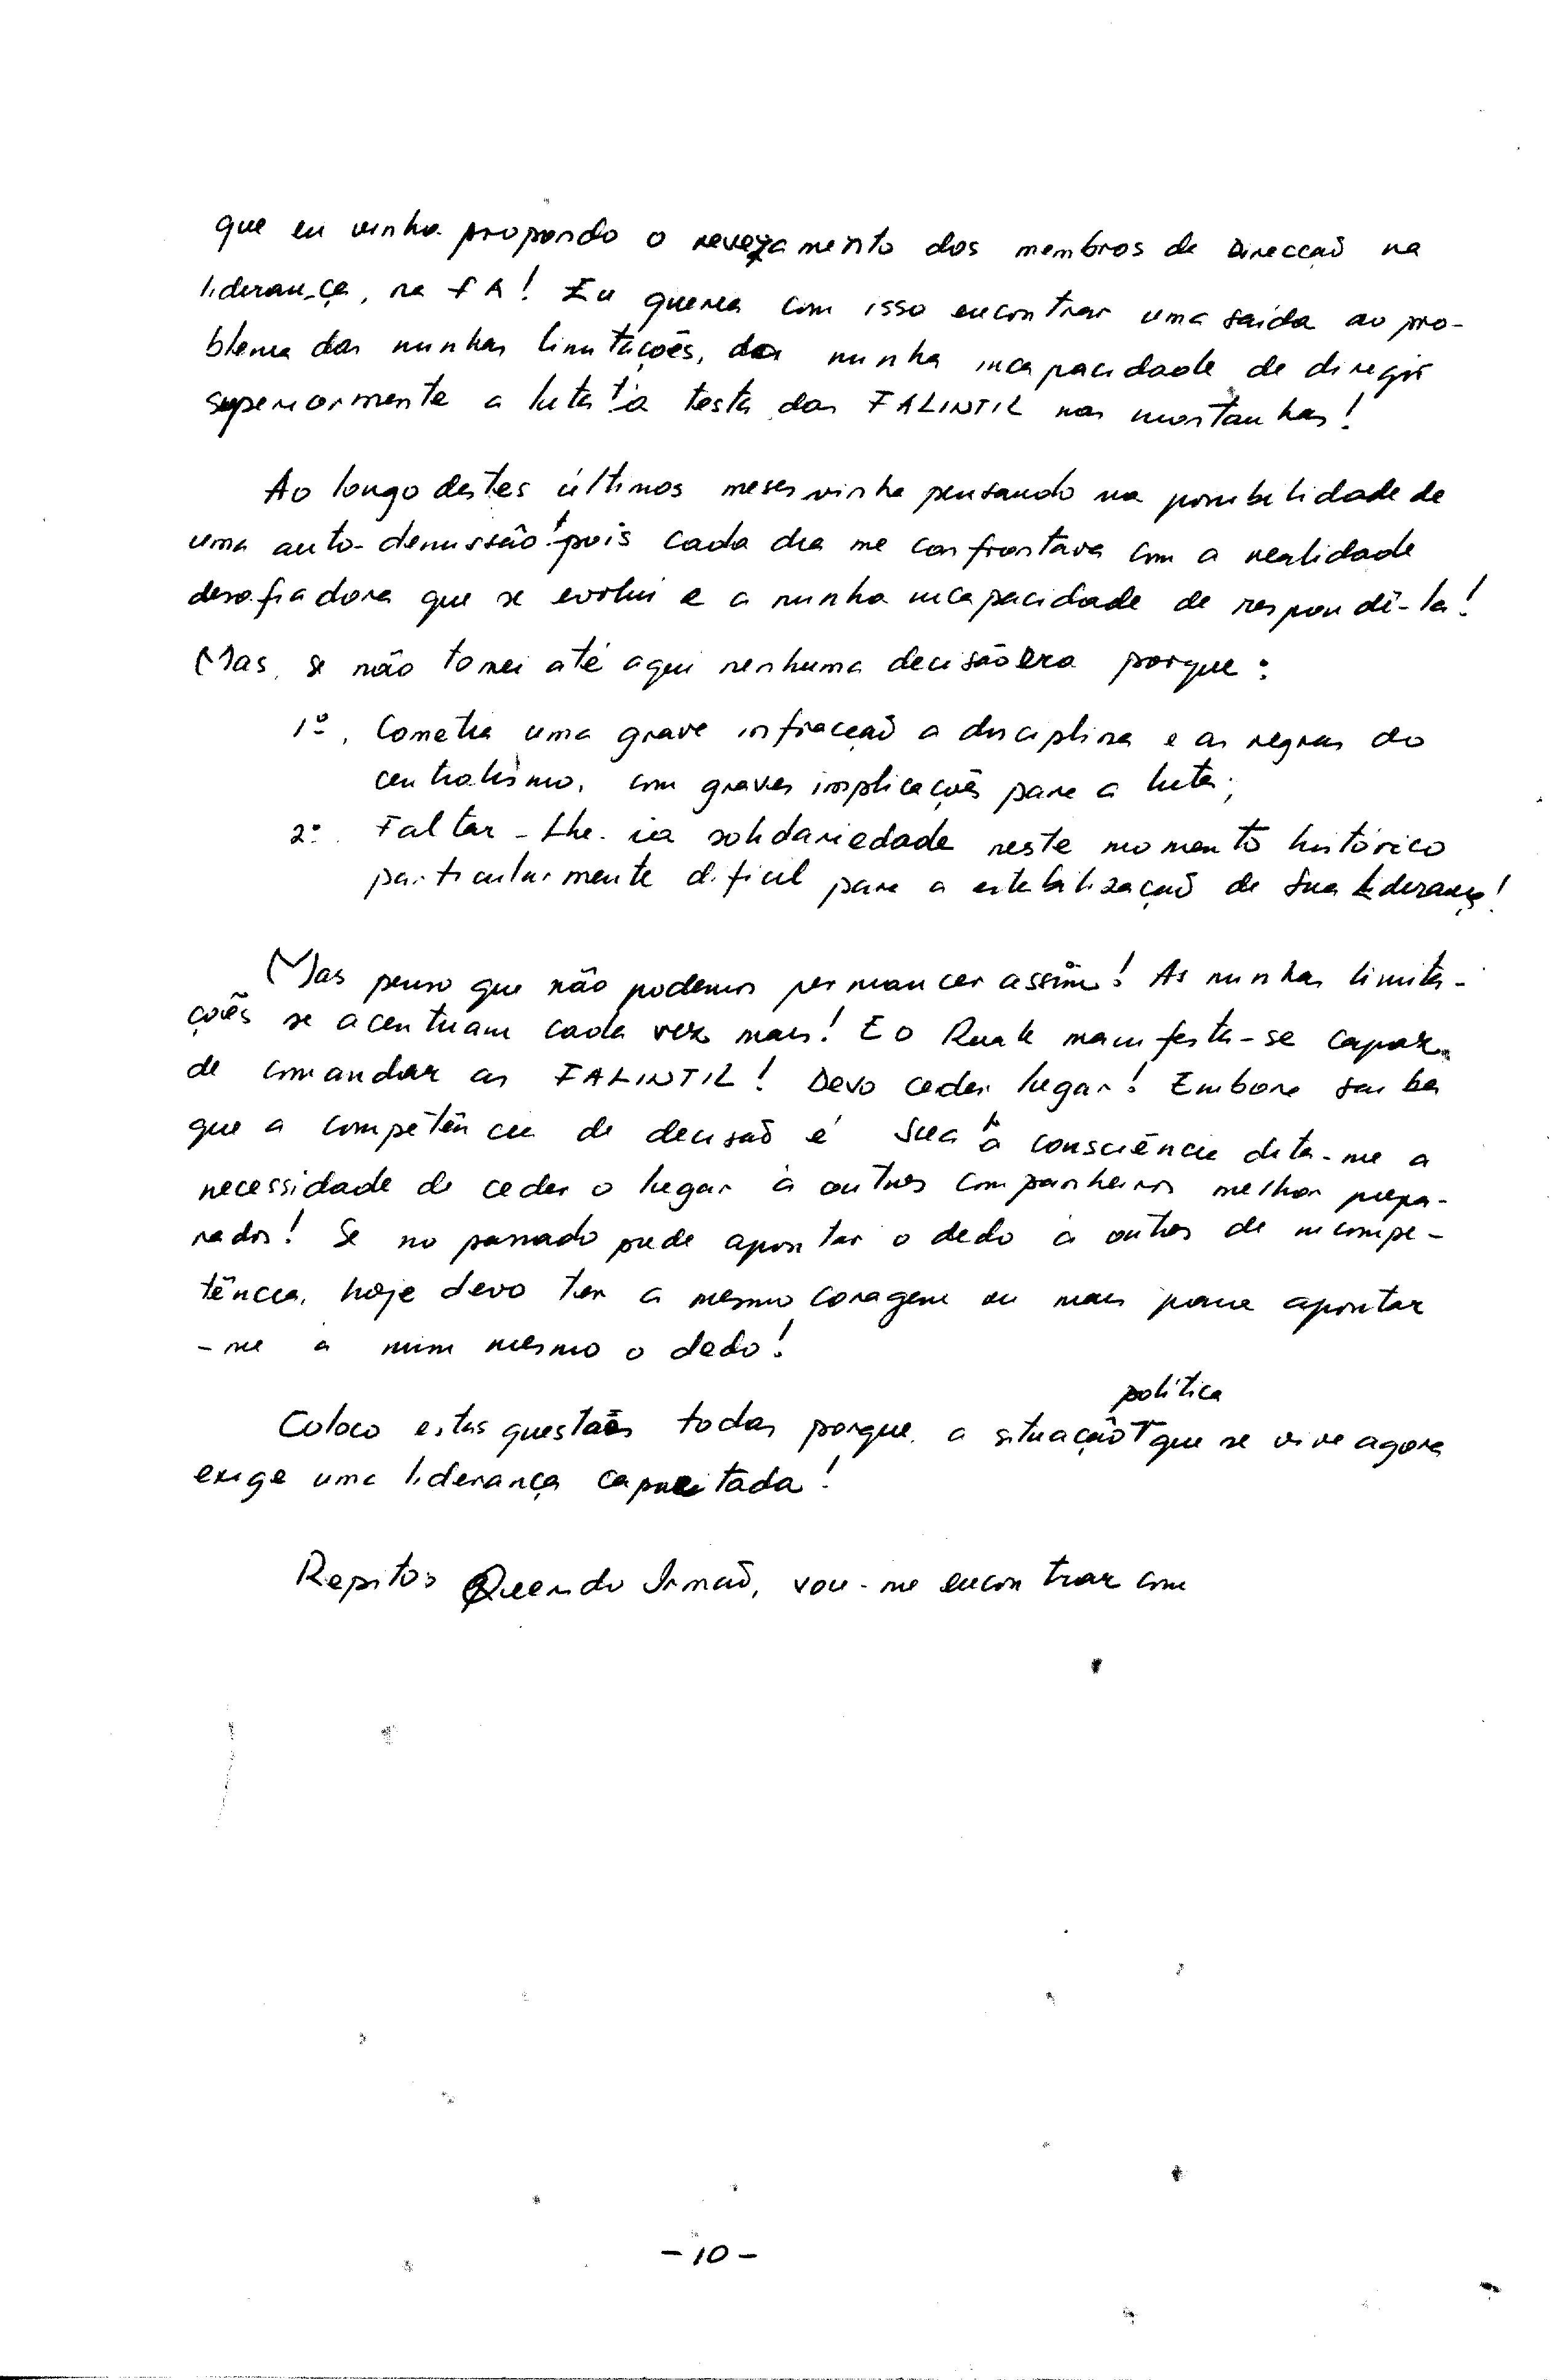 que eu vinha propondo o revezamento dos membros de Direcção na
liderança, na FA! Eu queria com isso encontrar uma saída ao pro-
blema das minhas limitações, da minha incapacidade de dirigir
superiormente a luta à testa das FALINTIL nas montanhas!
Ao longo destes últimos meses vinha pensando na possibilidade de
uma auto-demissão! pois cada dia me confrontava com a realidade
desafiadora que se evolui e a minha incapacidade de respondê-la!
Mas, se não tomei até aqui nenhuma decisão era porque:
1º. Cometia uma grave infracção a disciplina e as regras do
centralismo, com graves implicações para a luta;
2º. Faltar-lhe-ia solidariedade neste momento histórico
particularmente difícil para a estabilização de Sua liderança!
Mas penso que não podemos permancer assim! As minhas limita-
ções se acentuam cada vez mais! E o Ruak manifesta-se capaz
de comandar as FALINTIL! Devo ceder lugar! Embora saiba
que a competência de decisão é Sua a consciência dita-me a
necessidade de ceder o lugar à outros companheiros melhor prepa-
rados! Se no passado pude apontar o dedo à outros de incompe-
tência, hoje devo ter a mesmo coragem ou mais para apontar
-me a mim mesmo o dedo!
política
Coloco estas questões todas porque a situação que se vive agora
exige uma liderança capacitada!
Repito, Querido Irmão, vou-me encontrar com
- 10 -